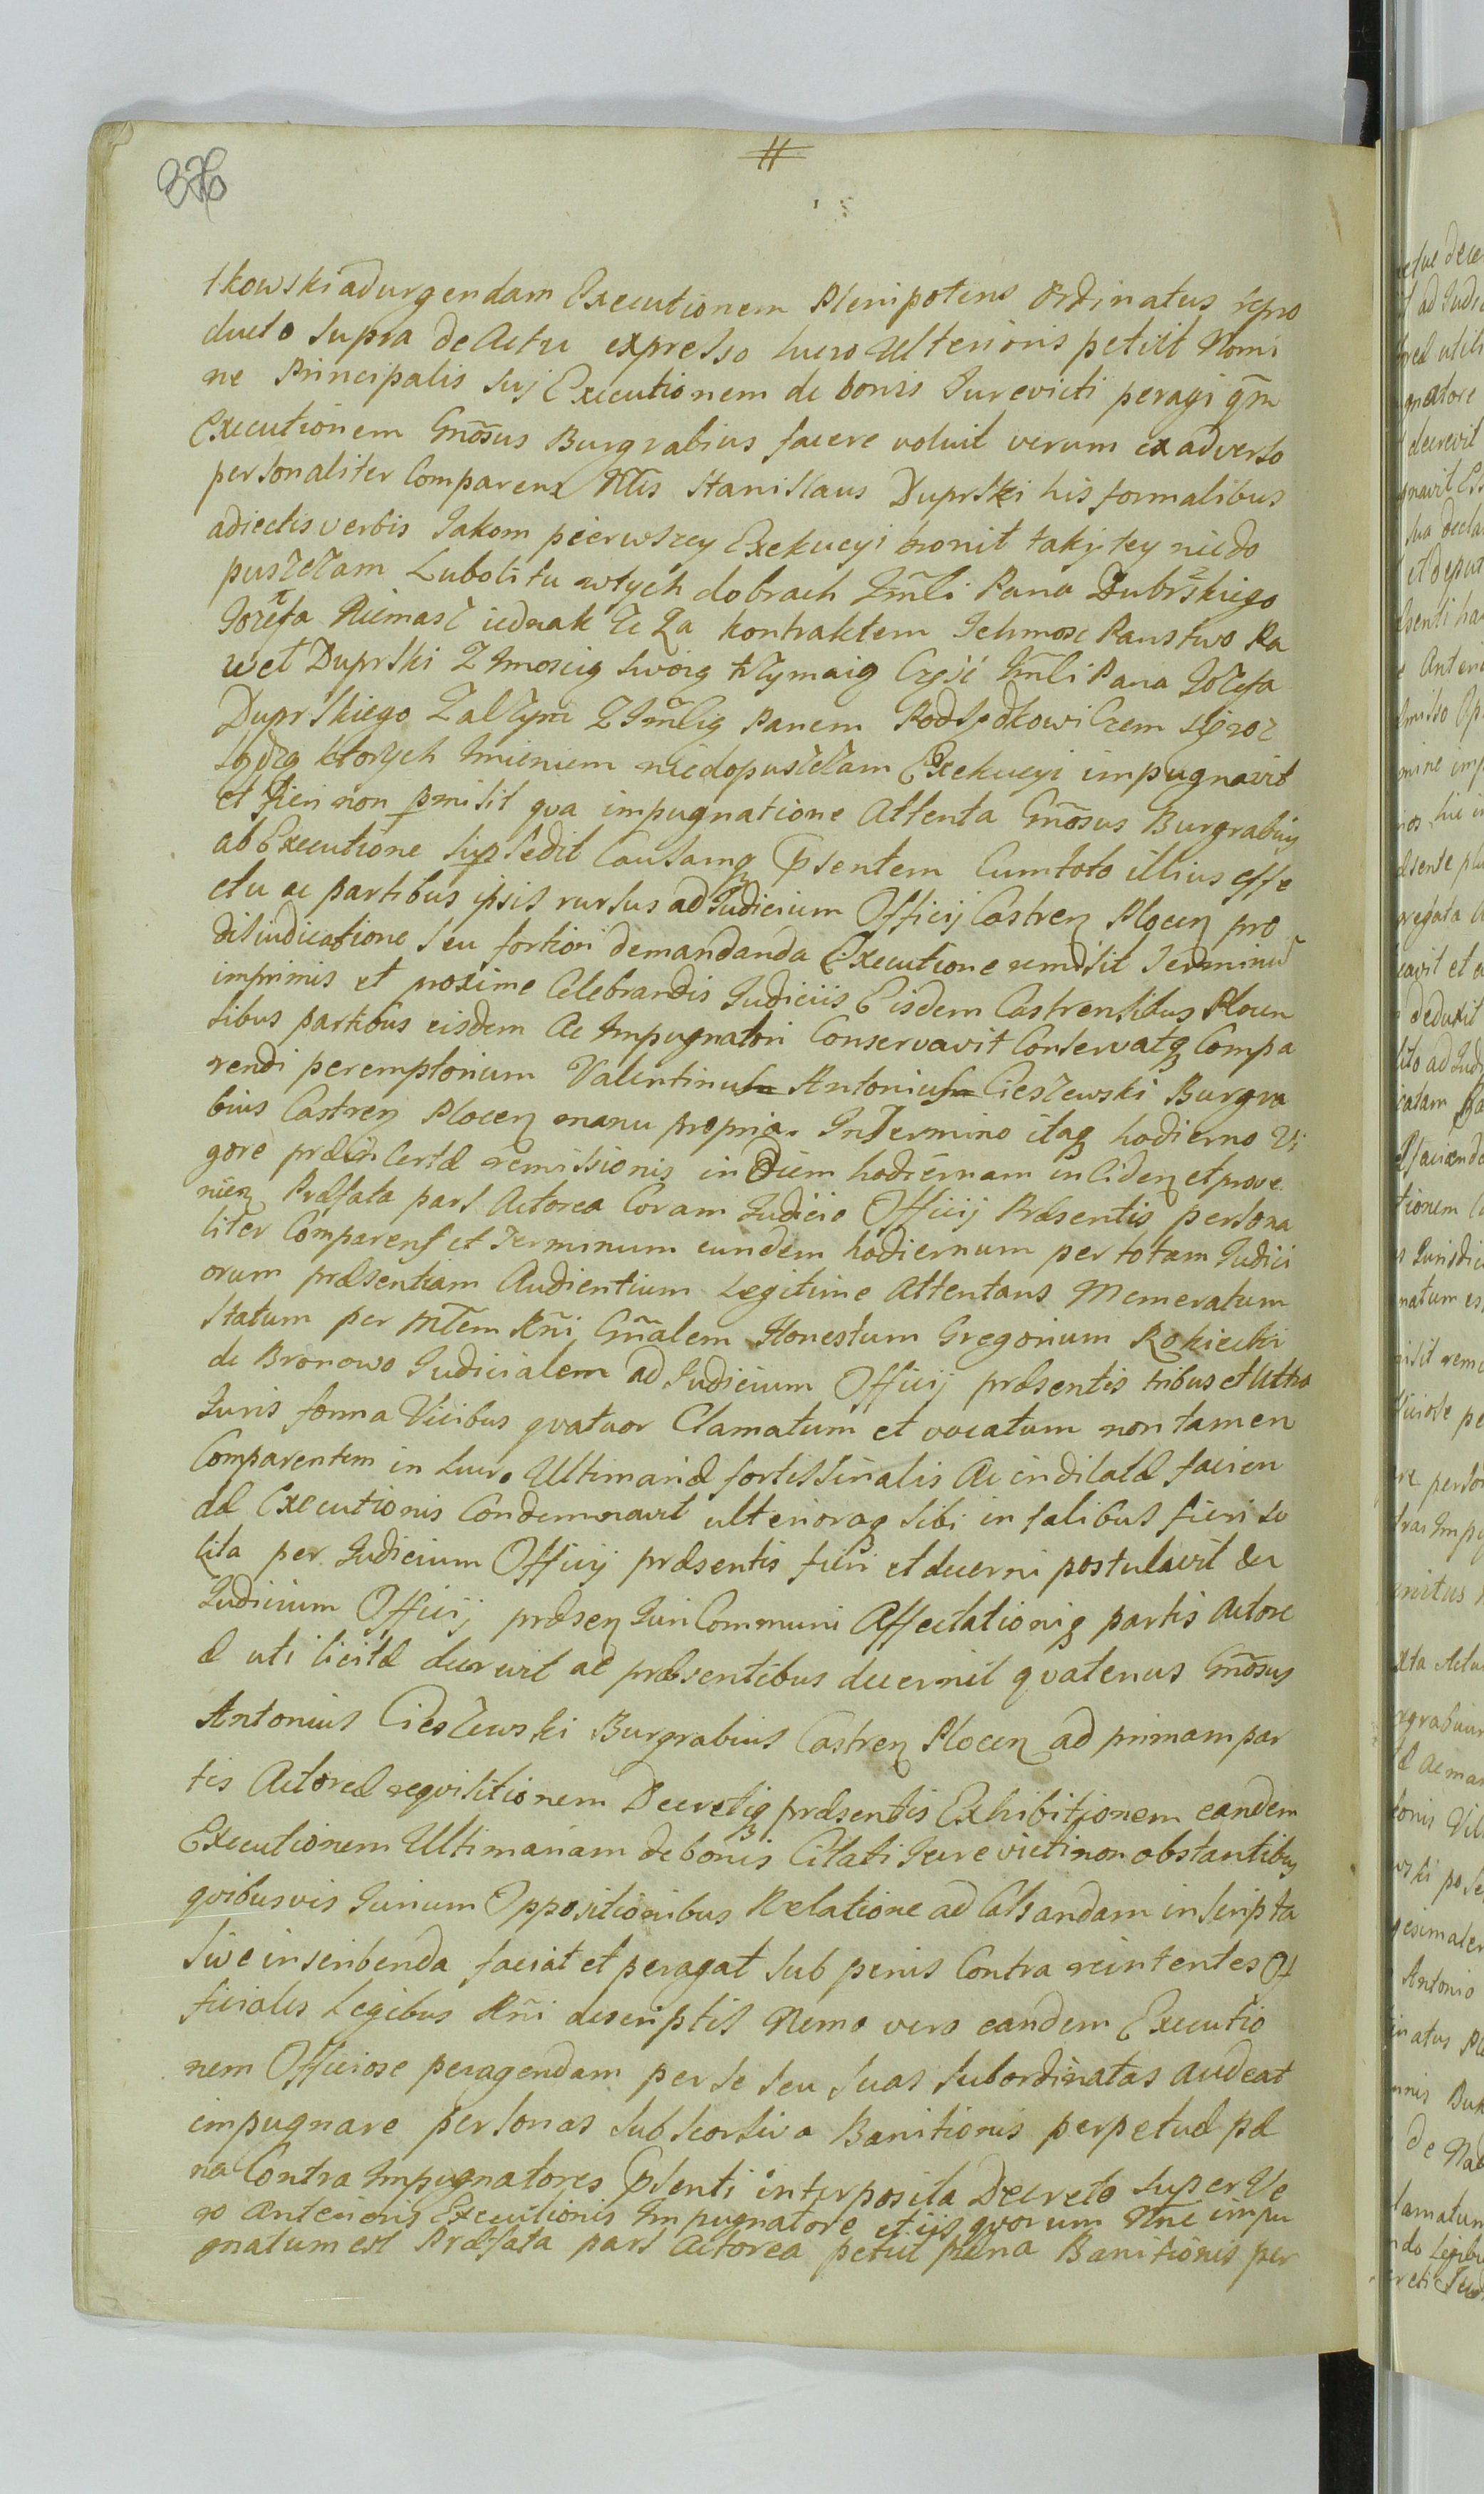 376
tkowski ad urgendam Executionem Plenipotens Ordinatus repro
ducto supra de Actu expresso lucro Ulterioris petiit Nomi
ne Principalis sui Executionem de bonis Iurevicti peragi qm̃
Executionem Gnõsus Burgrabius facere voluit verum ex adverso
personaliter Comparenz Ntis Stanislaus Duprski his formalibus
adiectis verbis Jakom pierwszey Exekucyi bronił tak y tey niedo
puszczam Lubo litu w tych dobrach Jm̃ci Pana Dubrskiego
Jozefa Niemasz iednak że Za kontraktem Ichmosc Panstwo Pa
weł Duprski Z Imoscią swoią trzymaią Częsć Jm̃ci Pana Jozefa
Duprskiego Zaszym Z Jm̃cią Panem Podsędkowiczem
sądzą ktorych Imieniem niedopuszczam Exekucyi impugnavit
et fieri non pmisit qva impugnatione Attenta Gnõsus Burgrabius
ab Executione supsedit Causamq Psentem Cum toto illius effe
ctu ac partibus ipsis rursus ad Judicium Officij Castren Plocen pro
dijudicatione seu fortiori demandanda Executione remisit Terminũ
imprimis et proxime Celebrandis Judiciis Eisdem Castrensibus Plocen
sibus partibus eisdem Ac Impugnatori Conservavit Conservatq Compa
rendi peremptorium Valentinus Antonius Cieszewski Burgra
bius Castren Plocen manu propria. In Termino itaq hodierno Vi
gore præinsertæ remissionis in Diem hodiernam inciden et prove
nien Præfata pars Actorea Coram Judicio Officij Præsentis persona
liter Comparens et Terminum eundem hodiernum per totam Judici
orum præsentiam Audientium Legitime Attentans Memoratum
statum per Mtẽm Rñi Gñalem Honestum Gregorium Rokiecki
de Bronowo Judicialem ad Judicium Officij præsentis tribus et Ultra
Juris forma Vicibus qvatuor Clamatum et vocatum non tamen
Comparentem in lucro Ultimariæ fortissimalis Ac indilatæ facien
dæ Executionis Condemnavit ulterioraq sibi in talibus fieri so
lita per Judicium Officij præsentis fieri et decerni postulavit Et
Judicium Officij præsen Juri Communi Affectationiq partis Actore
æ uti licitæ decrevit ac præsentibus decernit qvatenus Gnõsus
Antonius Cieszewski Burgrabius Castren Plocen ad primam par
tis Actoreæ reqvisitionem Decretiq præsentis Exhibitionem eandem
Executionem Ultimariam de bonis Citati Jure victi non obstantibus
qvibusvis Jurium Oppositionibus Relatione ad Cassandam inscripta
sive inscribenda faciat et peragat sub pœnis Contra renitentes Of
ficiales Legibus Rñi descriptis Nemo vero eandem Executio
nem Officiose peragendam per se seu suas subordinatas audeat
impugnare personas sub Banitionis perpetuæ pæ
na Contra Impugnatores Psenti interposita Decreto super Ve
ro Anterioris Executionis Impugnatore et iis qvorum Nñe impu
gnatum est Præfata pars Actorea petiit pæna Banitionis per